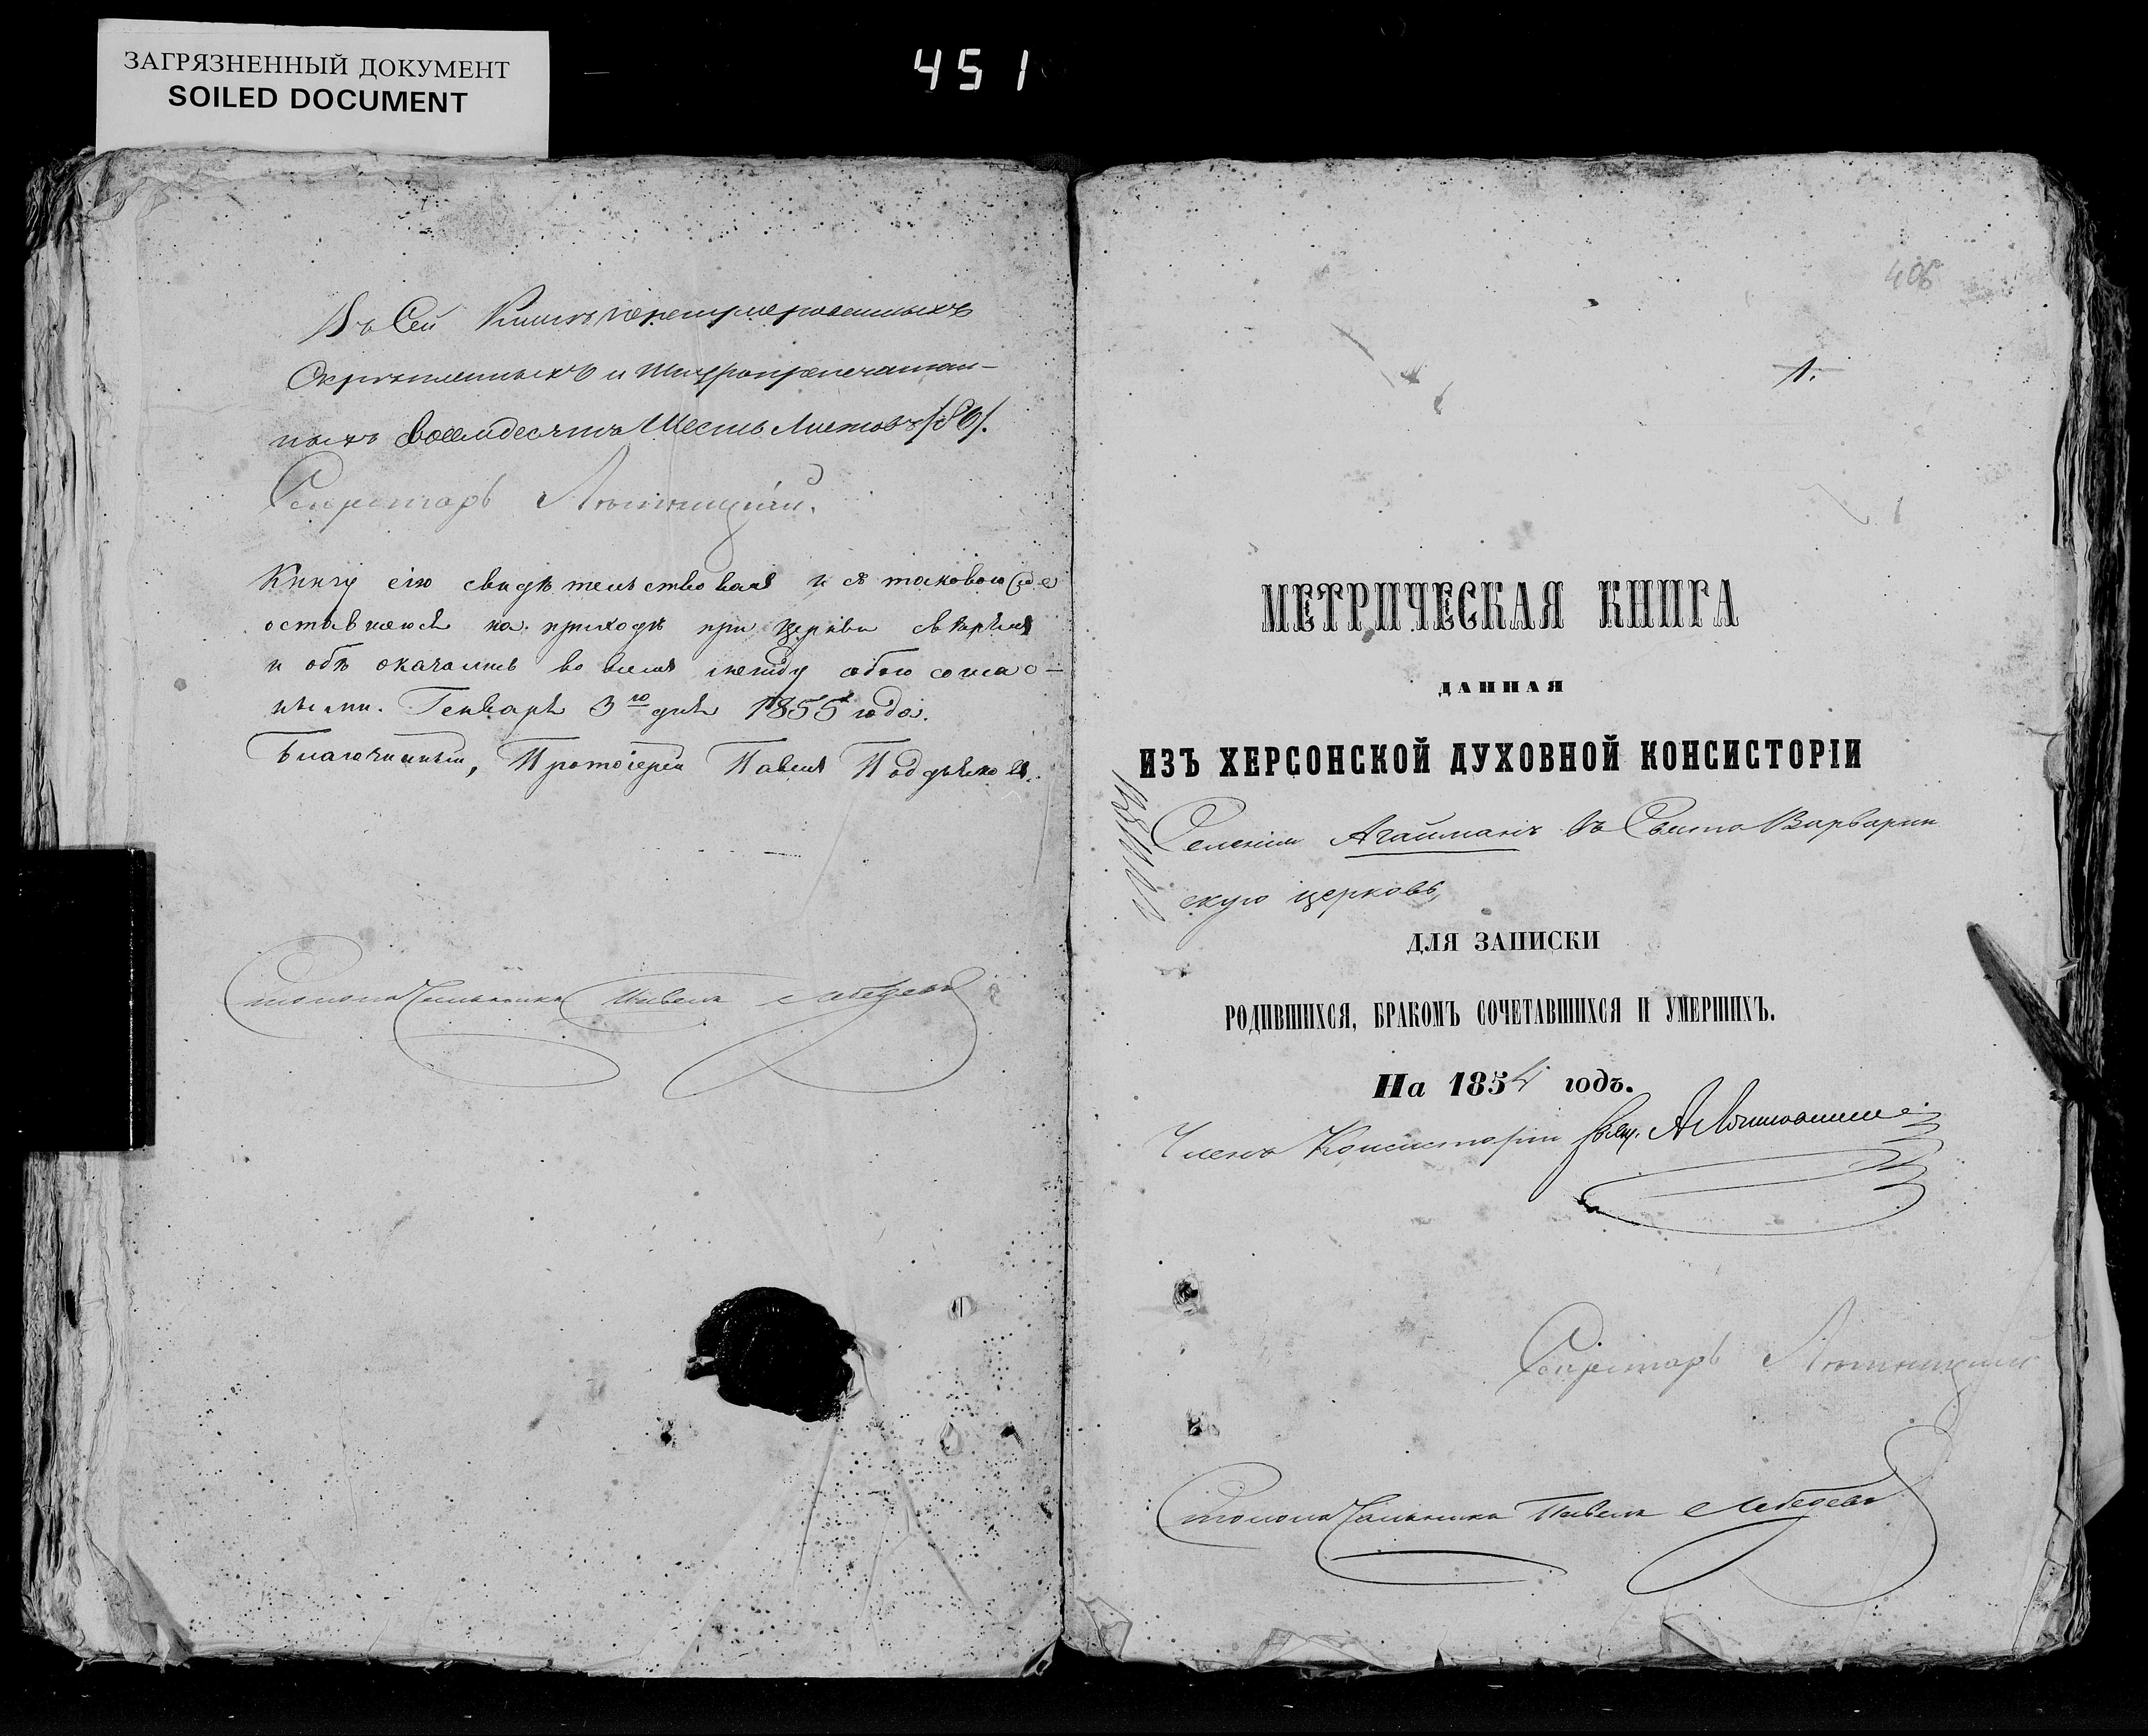 ЗАГРЯЗНЕННЫЙ ДОКУМЕНТ
SOILED DOCUMENT
451
Въ сей Книгѣ перенумерованныхъ
Скрѣпленныхъ и Шнуропрепечатан-
ныхъ восемдесятъ Шесть Листовъ /86/.
Секретарь
Книгу сію свидѣтельствовалъ и съ таковою же
оставшеюся на приходѣ при церкви свѣрялъ
и обѣ оказались во всемъ между собою соглас-
ными. Генваря 3го дня 1855 года.
Благочинный, Протоіерей Павелъ
Столоначальникъ Павелъ Лебедевъ
406
1.
МЕТРИЧЕСКАЯ КНИГА
ДАННАЯ
ИЗЪ ХЕРСОНСКОЙ ДУХОВНОЙ КОНСИСТОРІИ
Селенія Агайманъ въ Свято Варварин
скую церковь,
ДЛЯ ЗАПИСКИ
РОДИВШИХСЯ, БРАКОМЪ СОЧЕТАВШИХСЯ И УМЕРШИХЪ.
На 1854 годъ.
Членъ Консисторіи
Секретарь
Столоначальникъ Павелъ Лебедевъ